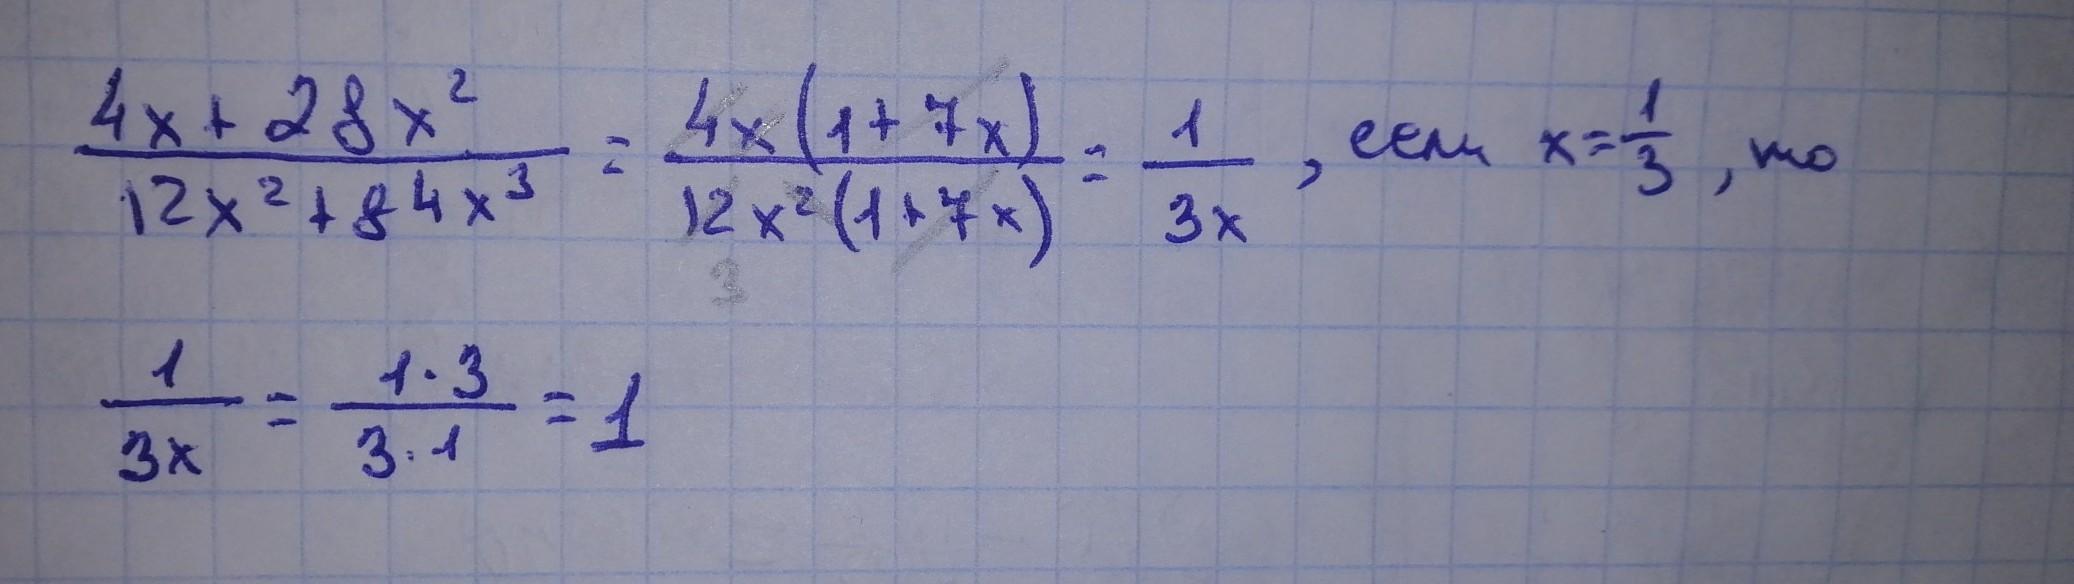 (4x + 28x²)/(12x² + 84x³) = (4x(1 + 7x))/(12x²(1 + 7x)) = 1/(3x), если x = 1/3, то
3
1/(3x) = (1 · 3)/(3 · 1) = 1